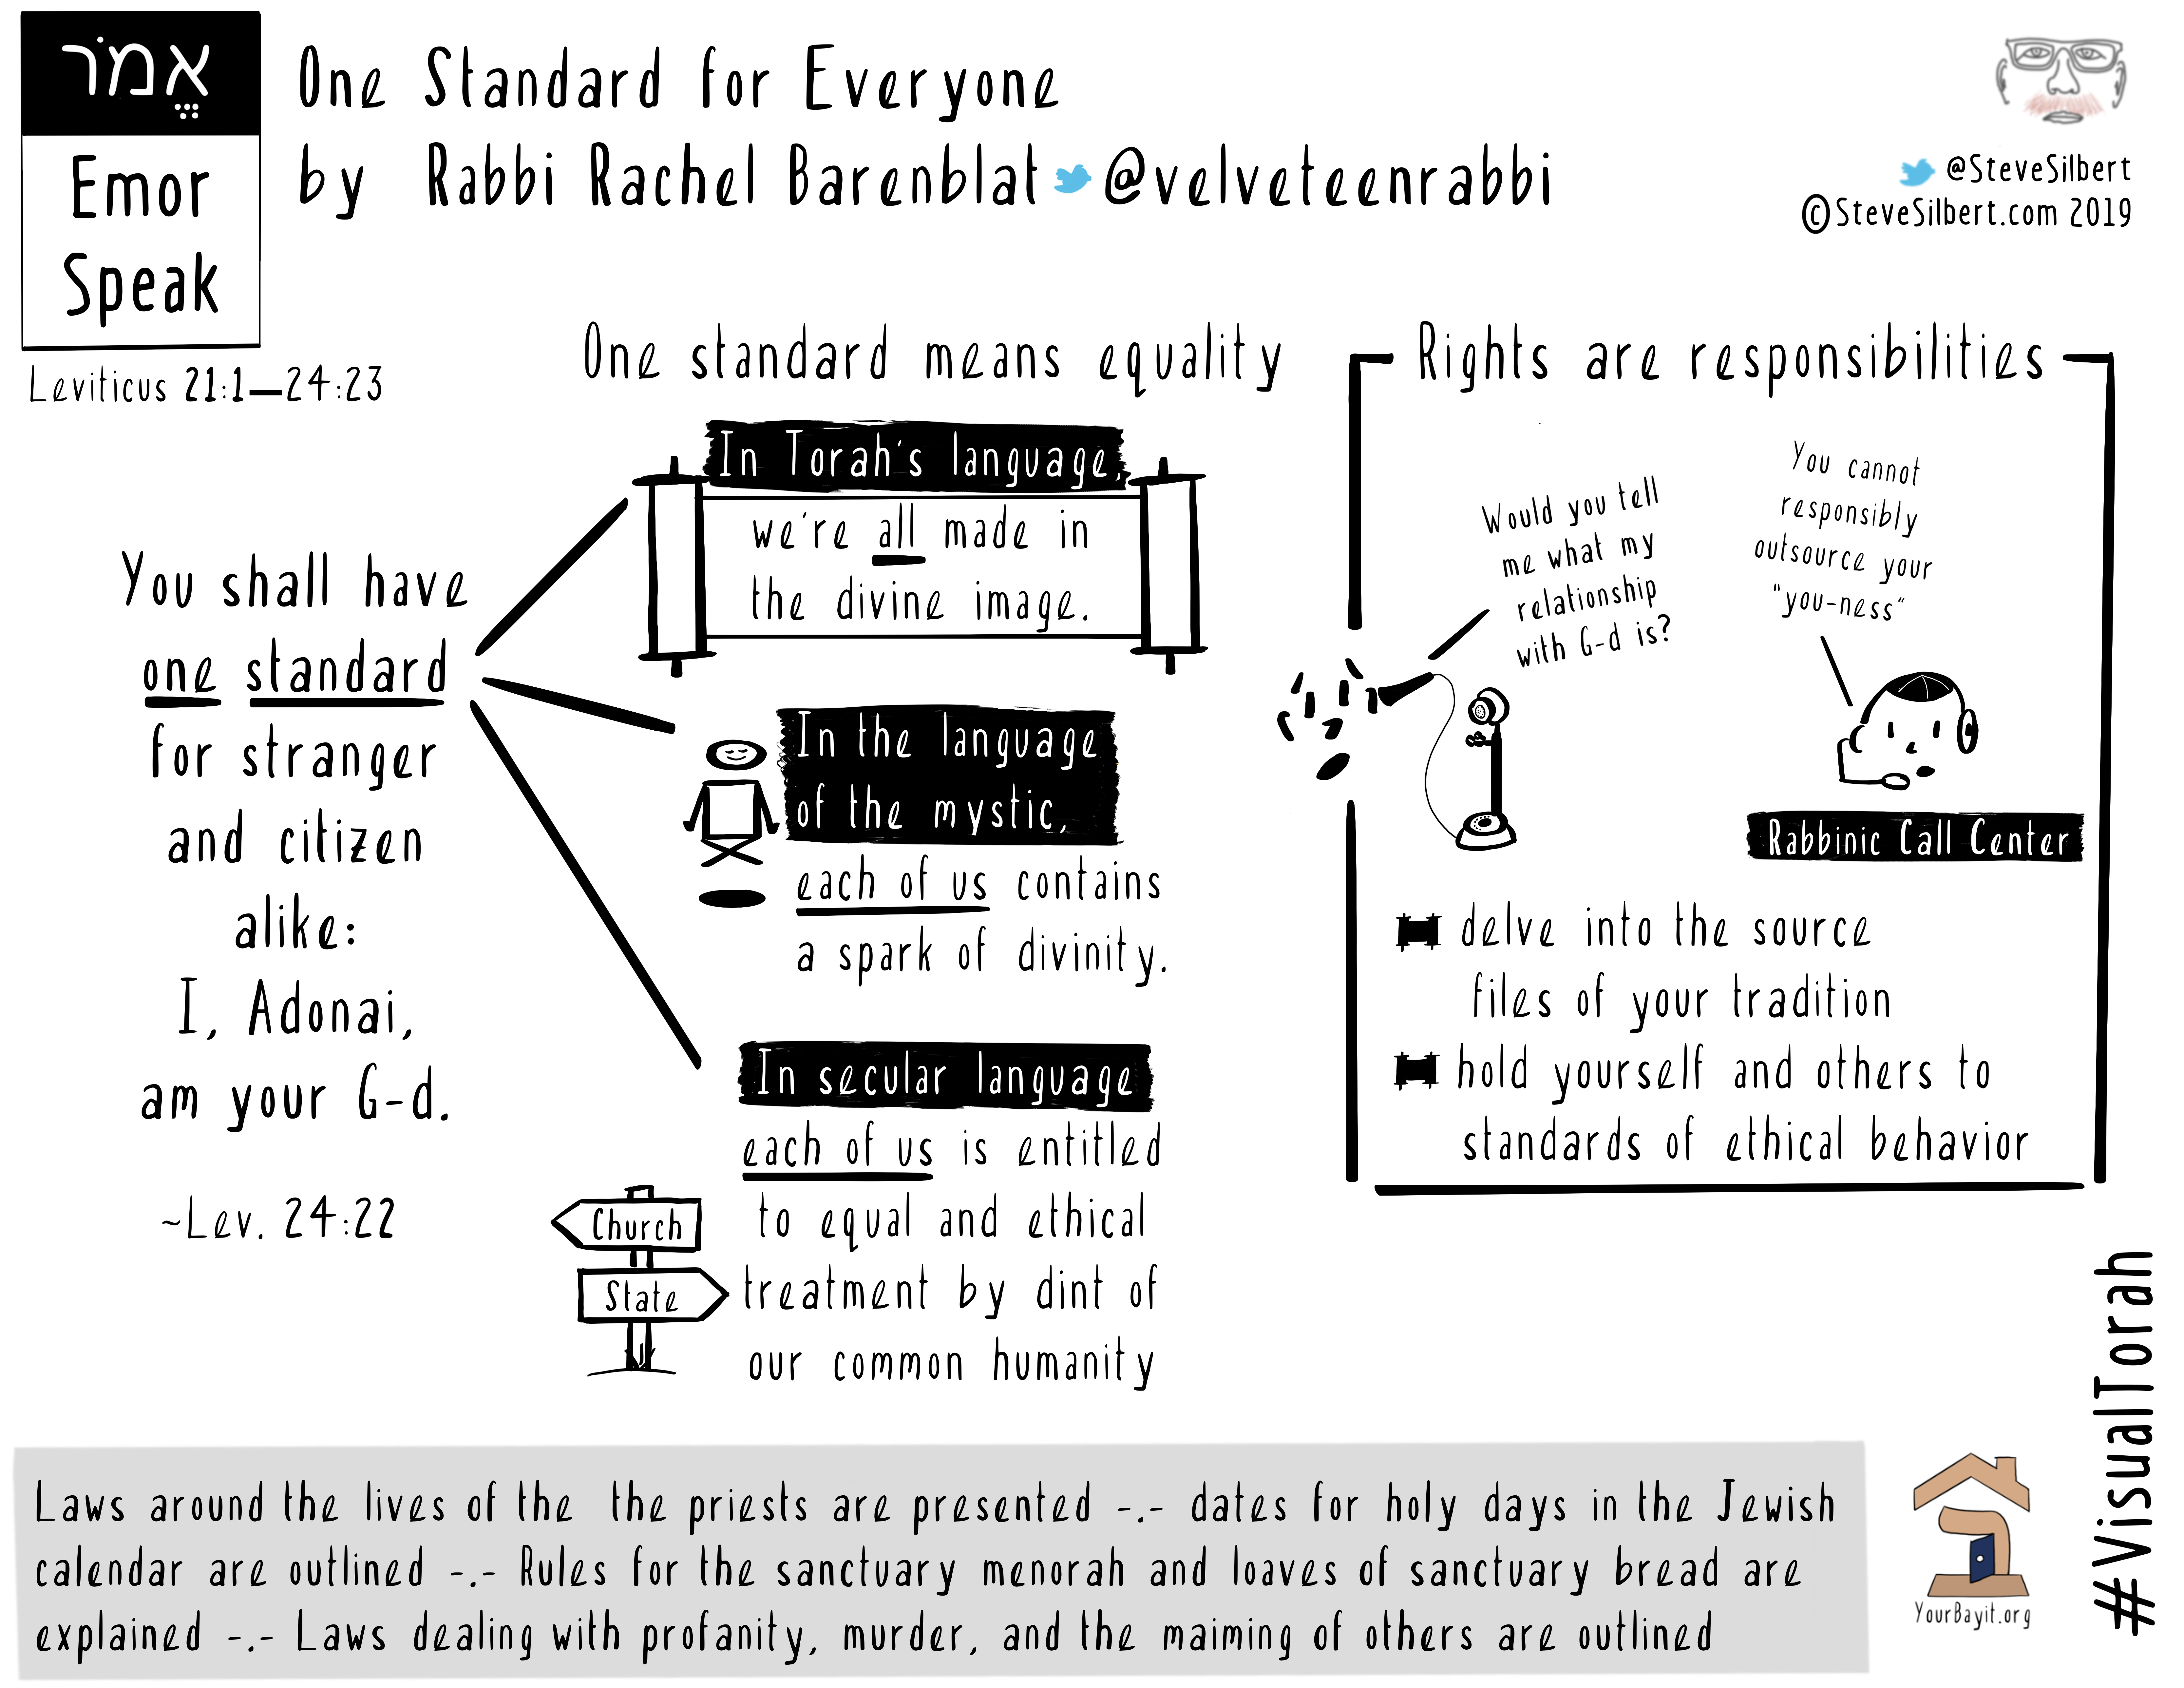 אֱמֹר
Emor
Speak
Leviticus 21:1—24:23
One Standard for Everyone
by Rabbi Rachel Barenblat @velveteenrabbi
@SteveSilbert
©SteveSilbert.com 2019
You shall have
one standard
for stranger
and citizen
alike:
I, Adonai,
am your G-d.
~Lev. 24:22
One standard means equality
In Torah's language,
we're all made in
the divine image.
In the language
of the mystic,
each of us contains
a spark of divinity.
In secular language
each of us is entitled
to equal and ethical
treatment by dint of
our common humanity
Church
State
Rights are responsibilities
Would you tell
me what my
relationship
with G-d is?
You cannot
responsibly
outsource your
"you-ness"
Rabbinic Call Center
delve into the source
files of your tradition
hold yourself and others to
standards of ethical behavior
Laws around the lives of the the priests are presented -.- dates for holy days in the Jewish
calendar are outlined -.- Rules for the sanctuary menorah and loaves of sanctuary bread are
explained -.- Laws dealing with profanity, murder, and the maiming of others are outlined
YourBayit.org
#VisualTorah